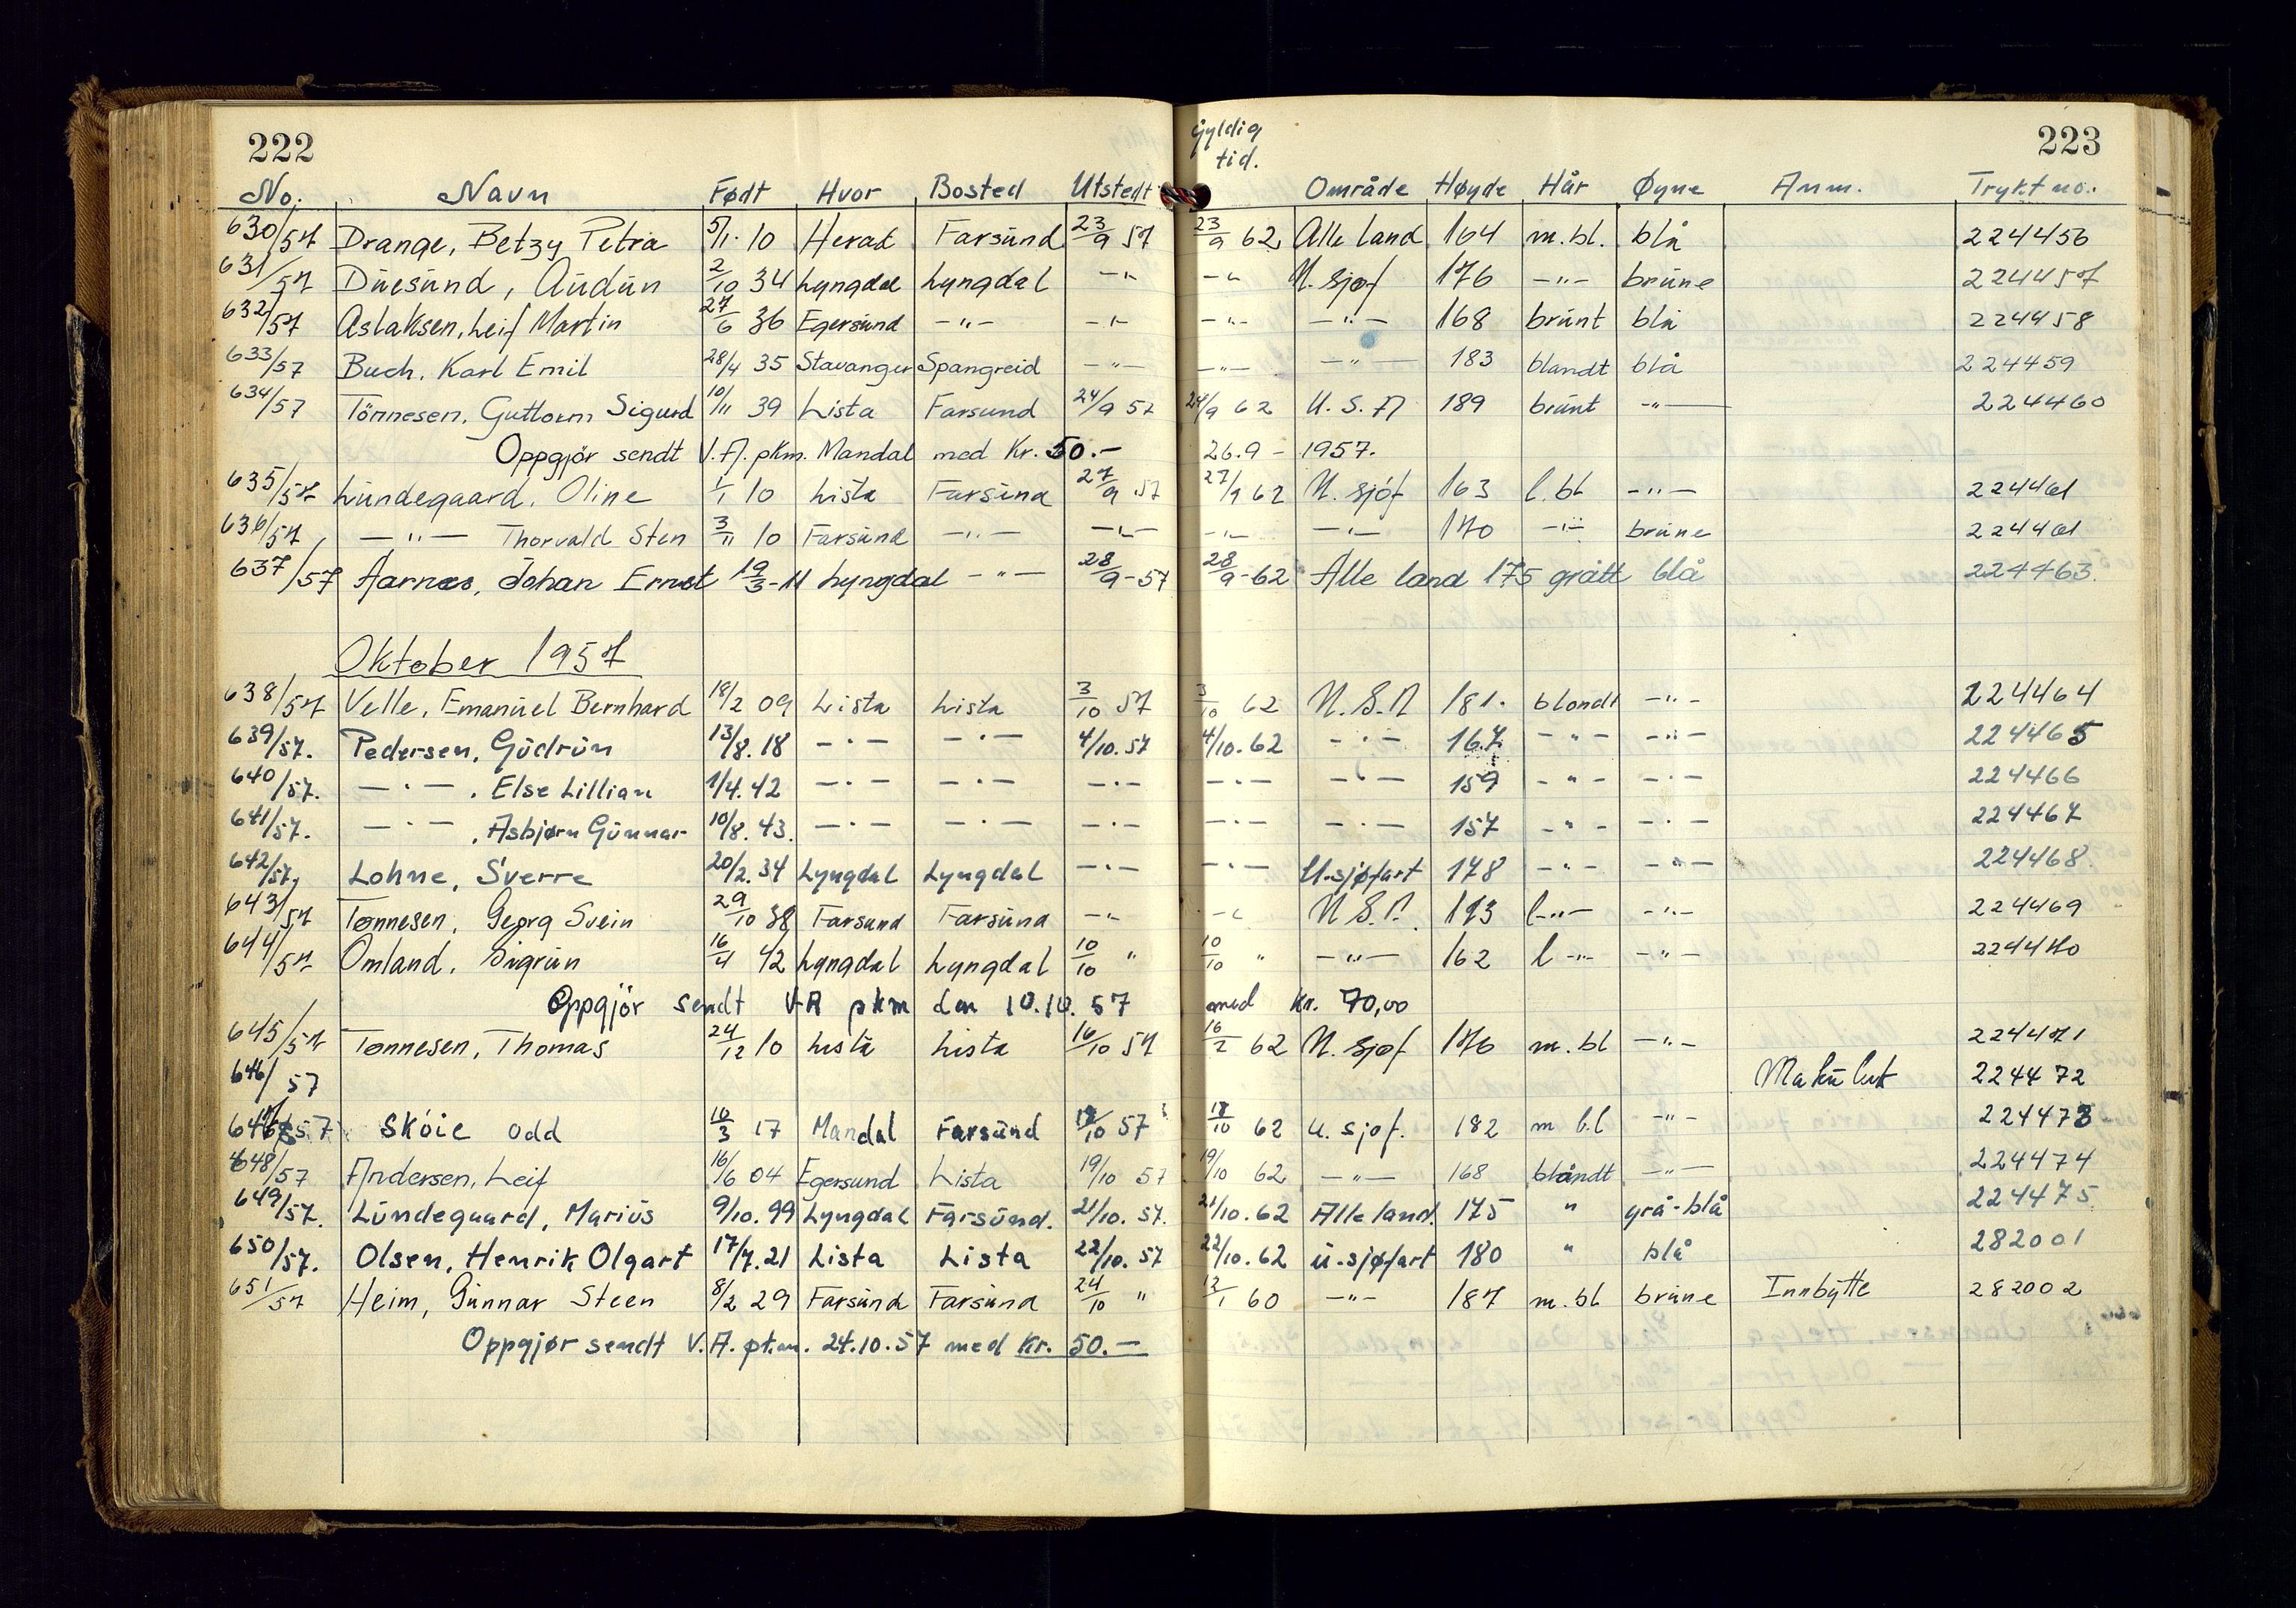 222
Gyldig tid.
223
No. Navn Født Hvor Bosted Utstedt Område Høyde Hår Øyne Anm. Trykt no.
630/57 Drange, Betzy Petra 5/1. 10 Herad Farsund 23/9 57 23/9 62 Alle land 164 m.bl. blå 224456
631/57 Duesund, Audun 2/10 34 Lyngdal Lyngdal -"- -"- U.sjøf 176 -"- brune 224457
632/57 Aslaksen, Leif Martin 27/6 36 Egersund -"- -"- -"- -"- 168 brunt blå 224458
633/57 Buch, Karl Emil 28/4 35 Stavanger Spangreid -"- -"- -"- 183 blandt blå 224459
634/57 Tönnesen, Guttorm Sigurd 10/11 39 Lista Farsund 24/9 57 24/9 62 U.S.A 189 brunt -"- 224460
Oppgjör sendt V.A. pkm. Mandal med Kr. 50.- 26.9 - 1957.
635/57 Lundegaard, Oline 1/1 10 Lista Farsund 27/9 57 27/9 62 U.sjöf 163 l.bl -"- 224461
636/57 -"- Thorvald Sten 3/11 10 Farsund -"- -"- -"- -"- 170 -"- brune 224461
637/57 Aarnes, Johan Ernst 19/3-11 Lyngdal -"- 28/9-57 28/9-62 Alle land 175 grått blå 224463.
Oktober 1957
638/57 Velle, Emanuel Bernhard 18/2 09 Lista Lista 3/10 57 3/10 62 U.S.A 181. blondt -"- 224464
639/57. Pedersen, Gudrun 13/8.18 -"- -"- 4/10.57 4/10.62 -"- 167 -"- -"- 224465
640/57. -"-, Else Lillian 1/4.42 -"- -"- -"- -"- -"- 159 -"- -"- 224466
641/57. -"-, Asbjørn Gunnar 10/8.43. -"- -"- -"- -"- -"- 157 -"- -"- 224467
642/57. Lohne, Sverre 20/2.34 Lyngdal Lyngdal -"- -"- U-sjøfart 178 -"- -"- 224468
643/57 Tønnesen, Georg Svein 29/10 38 Farsund Farsund -"- -"- U.S.A. 173 l-"- -"- 224469
644/57 Omland, Sigrun 16/4 42 Lyngdal Lyngdal 10/10 " 10/10 " -"- 162 l-"- -"- 224470
Oppgjör sendt VA pkm den 10.10.57 med kr. 70,00
645/57 Tønnesen, Thomas 24/12 10 Lista Lista 16/10 57 16/2 62 U.sjøf 176 m.bl -"- 224471
646/57 Makulert 224472
647/57 Sköie Odd 10/3 17 Mandal Farsund 18/10 57 18/10 62 U.sjof. 182 m bl -"- 224473
648/57 Andersen, Leif 16/6 04 Egersund Lista 19/10 57 19/10 62 -"- 168 blandt -"- 224474
649/57. Lundegaard, Marius 9/10.99 Lyngdal Farsund. 21/10.57. 21/10.62 Alle land. 175 " grå-blå 224475
650/57. Olsen, Henrik Olgart 17/7.21 Lista Lista 22/10.57 22/10.62 u-sjøfart 180 " blå 282001
651/57 Heim, Gunnar Steen 8/2 29 Farsund Farsund 24/10 " 12/1 60 -"- 187 m.bl brune Innbytte 282002
Oppgjør sendt V.A. pkm. 24.10.57 med Kr. 50.-